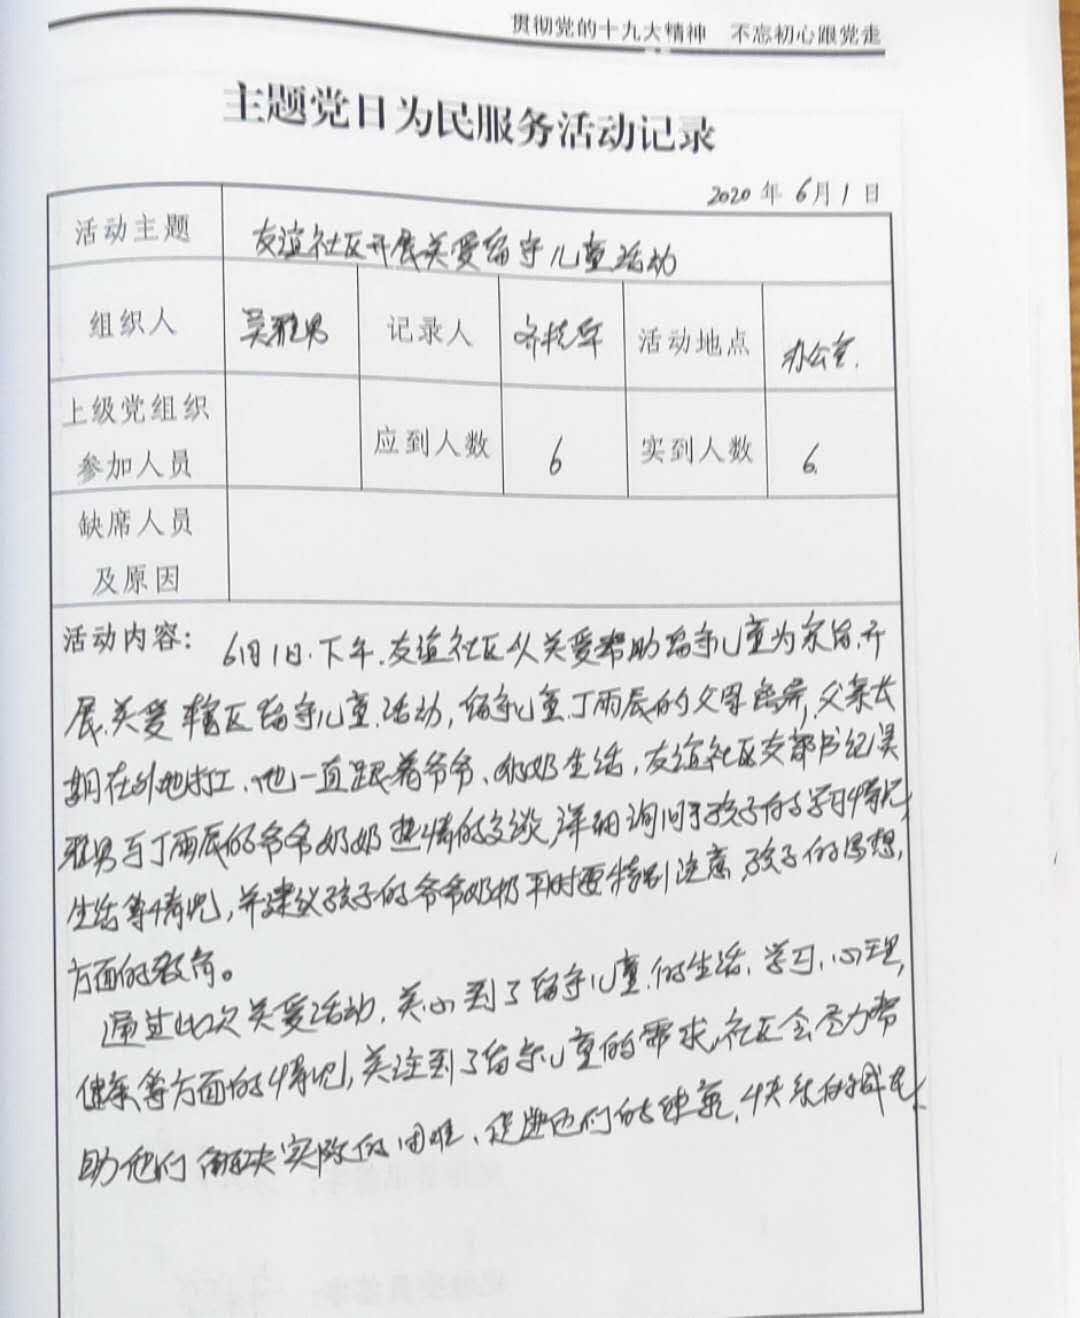 贯彻党的十九大精神 不忘初心跟党走
主题党日为民服务活动记录
2020年6月1日
活动主题 友谊社区开展关爱留守儿童活动
组织人 吴雅男 记录人 活动地点 办公室.
上级党组织
参加人员 应到人数 6 实到人数 6.
缺席人员
及原因
活动内容: 6月1日.下午.友谊社区从关爱帮助留守儿童为宗旨.开
展.关爱辖区留守儿童.活动,留守儿童.丁雨辰的父母离异,父亲长
期在外地打工.他一直跟着爷爷、奶奶生活,友谊社区支部书记吴
雅男与丁雨辰的爷爷奶奶热情的交谈,详细询问了孩子的学习情况,
生活等情况,并建议孩子的爷爷奶奶平时要特别注意,孩子的思想,
方面的教育。
通过此次关爱活动.关心到了留守儿童.的生活.学习.心理,
健康等方面的情况,关注到了留守儿童的需求,社区会尽力帮
助他们解决实际的困难、促进他们的健康,快乐的成长.